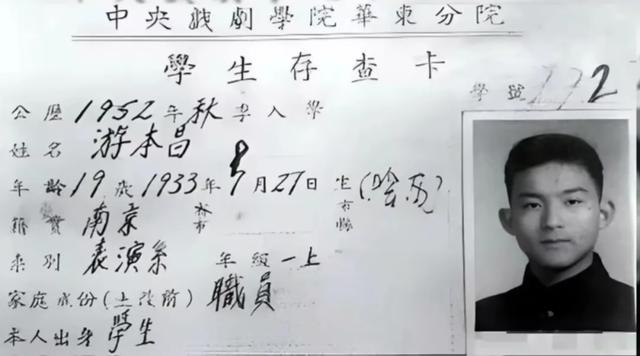 中央戏剧學院華東分院
學生存查卡
學號 172
公歷1952年秋季入學
姓名 游本昌
年齡19歲1933年8月27日生(陰历)
籍貫 南京 省市 市縣
系別 表演系 年級 一上
家庭成份(土改前) 職員
本人出身 學生